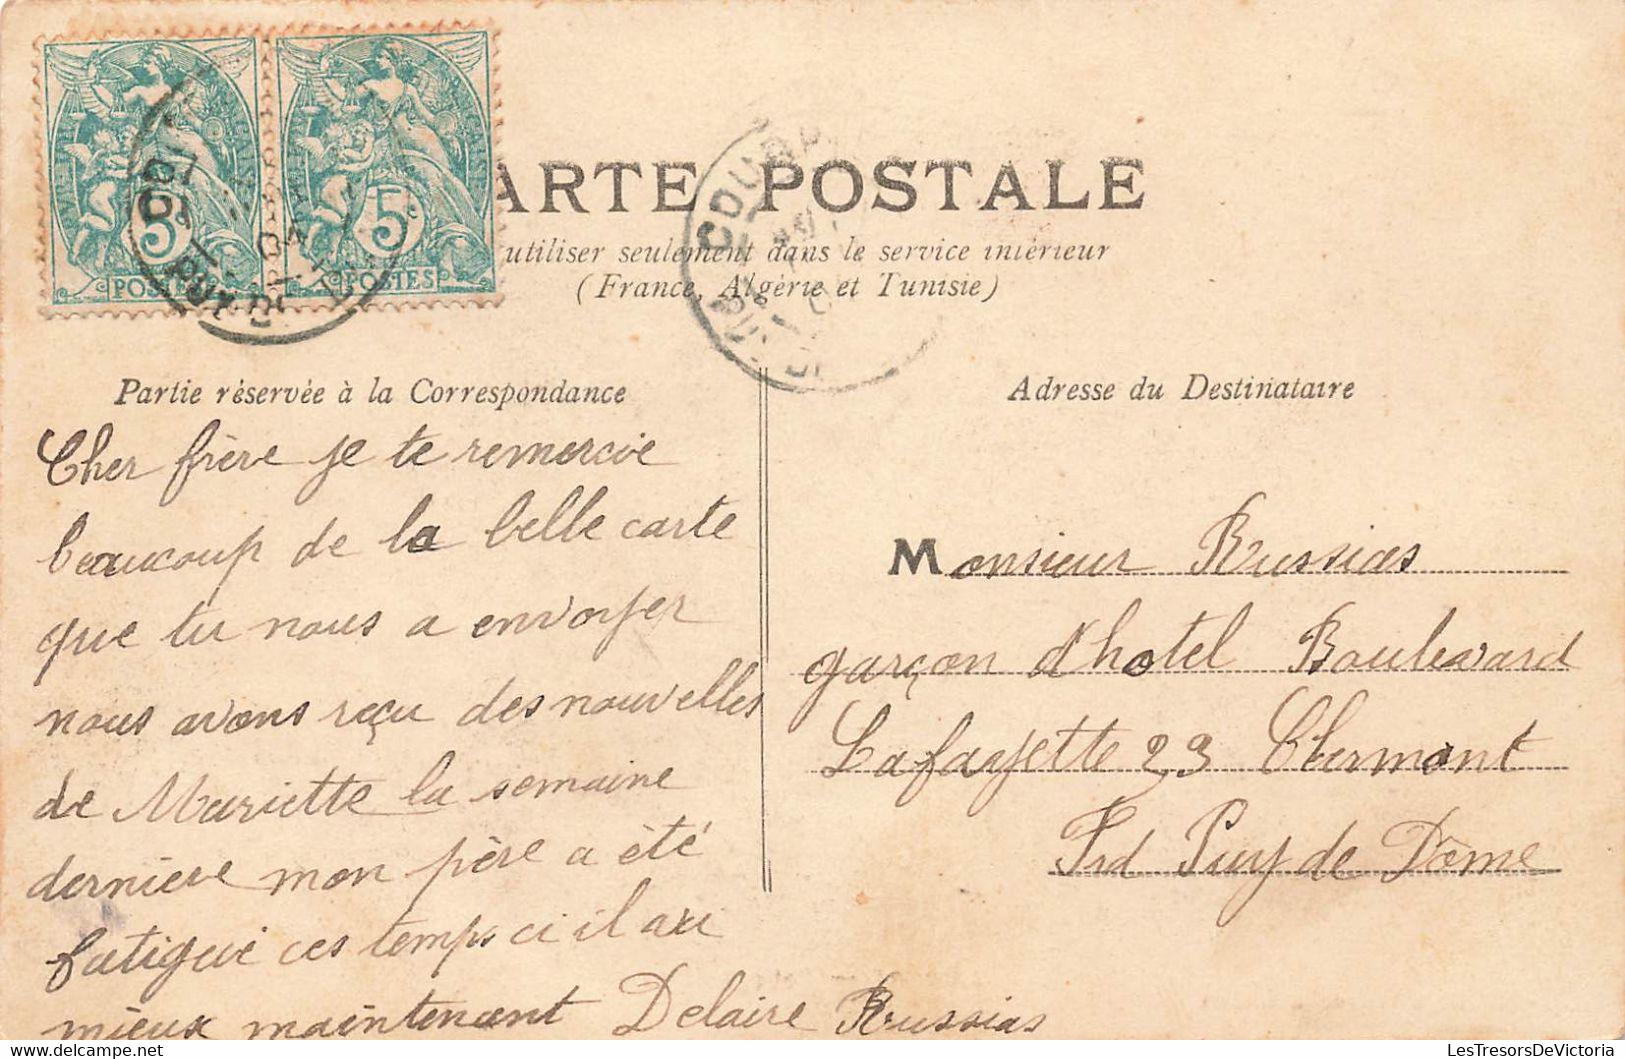 CARTE POSTALE
utiliser seulement dans le service intérieur
(France, Algérie et Tunisie)
5c
POSTES
5c
POSTES
Partie réservée à la Correspondance
Cher frère je te remercie
beaucoup de la belle carte
que tu nous a envoyer
nous avons reçu des nouvelles
de Mariette la semaine
derniere mon père a été
fatigué ces temps ci il
mieux maintenant Delaire Russias
Adresse du Destinataire
Monsieur Russias
garçon d'hotel Boulevard
Lafayette 23 Clermont
Frd Puy de Dôme
LesTresorsDeVictoria